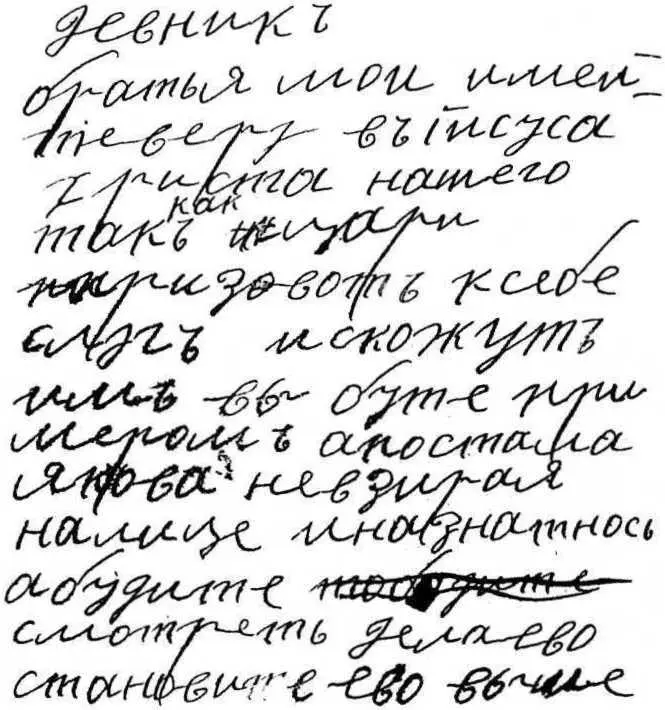 девникъ
братья мои имей=
теверу въ Іисуса
христа нашего
такъ как цари
призовотъ ксебе
слугъ искожутъ
имъ вы буте при
меромъ апостама
якова невзирая
налице иназнатнось
абудите
смотреть делаево
становите ево выше